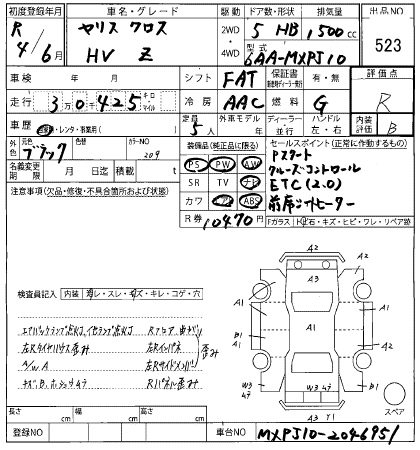 初度登録年月 車名・グレード 駆動 ドア数・形状 排気量 出品NO
R 4/6月 ヤリス クロス HV Z 2WD・4WD 5 HB 1,500cc 523
型式 6AA-MXPJ10
車検 年 月 シフト FAT 保証書 有・無 評価点
走行 3万0千425 キロ マイル 冷房 AAC 燃料 G R
車歴 自家・レンタ・事業用( ) 定員 5人 外車モデル 年 ディーラー 並行 ハンドル 左・右 内装評価 B
外色 元色 ブラック 色替 カラーNO 209
装備品(純正品に限る) セールスポイント(正常に作動するもの)
PS PW AW Pスタート
名義変更期限 月 日 積載 t SR TV ナビ クルーズコントロール
注意事項(欠品・修復・不具合箇所および状態) カワ エアB ABS ETC(2.0)
前席シートヒーター
R券 10470円 Fガラス 飛石・キズ・ヒビ・ワレ・リペア跡
検査員記入 内装 汚レ・スレ・キズ・キレ・コゲ・穴
エアバックランプ点灯、
RフロアBリ
左Rタイヤハウス歪み 左Rインパネ 歪み
A/W A 左Rサイドメンバ
キズ、B、ホシュウ47 Rパネル歪み
A2
A3
A1 A1
B1 A1 A1 A2
A1
A2
W3 47 W3 47 B1
A3 Y1
スペア
長さ cm 幅 cm 高さ cm
登録NO 車台NO MXPJ10-2046951